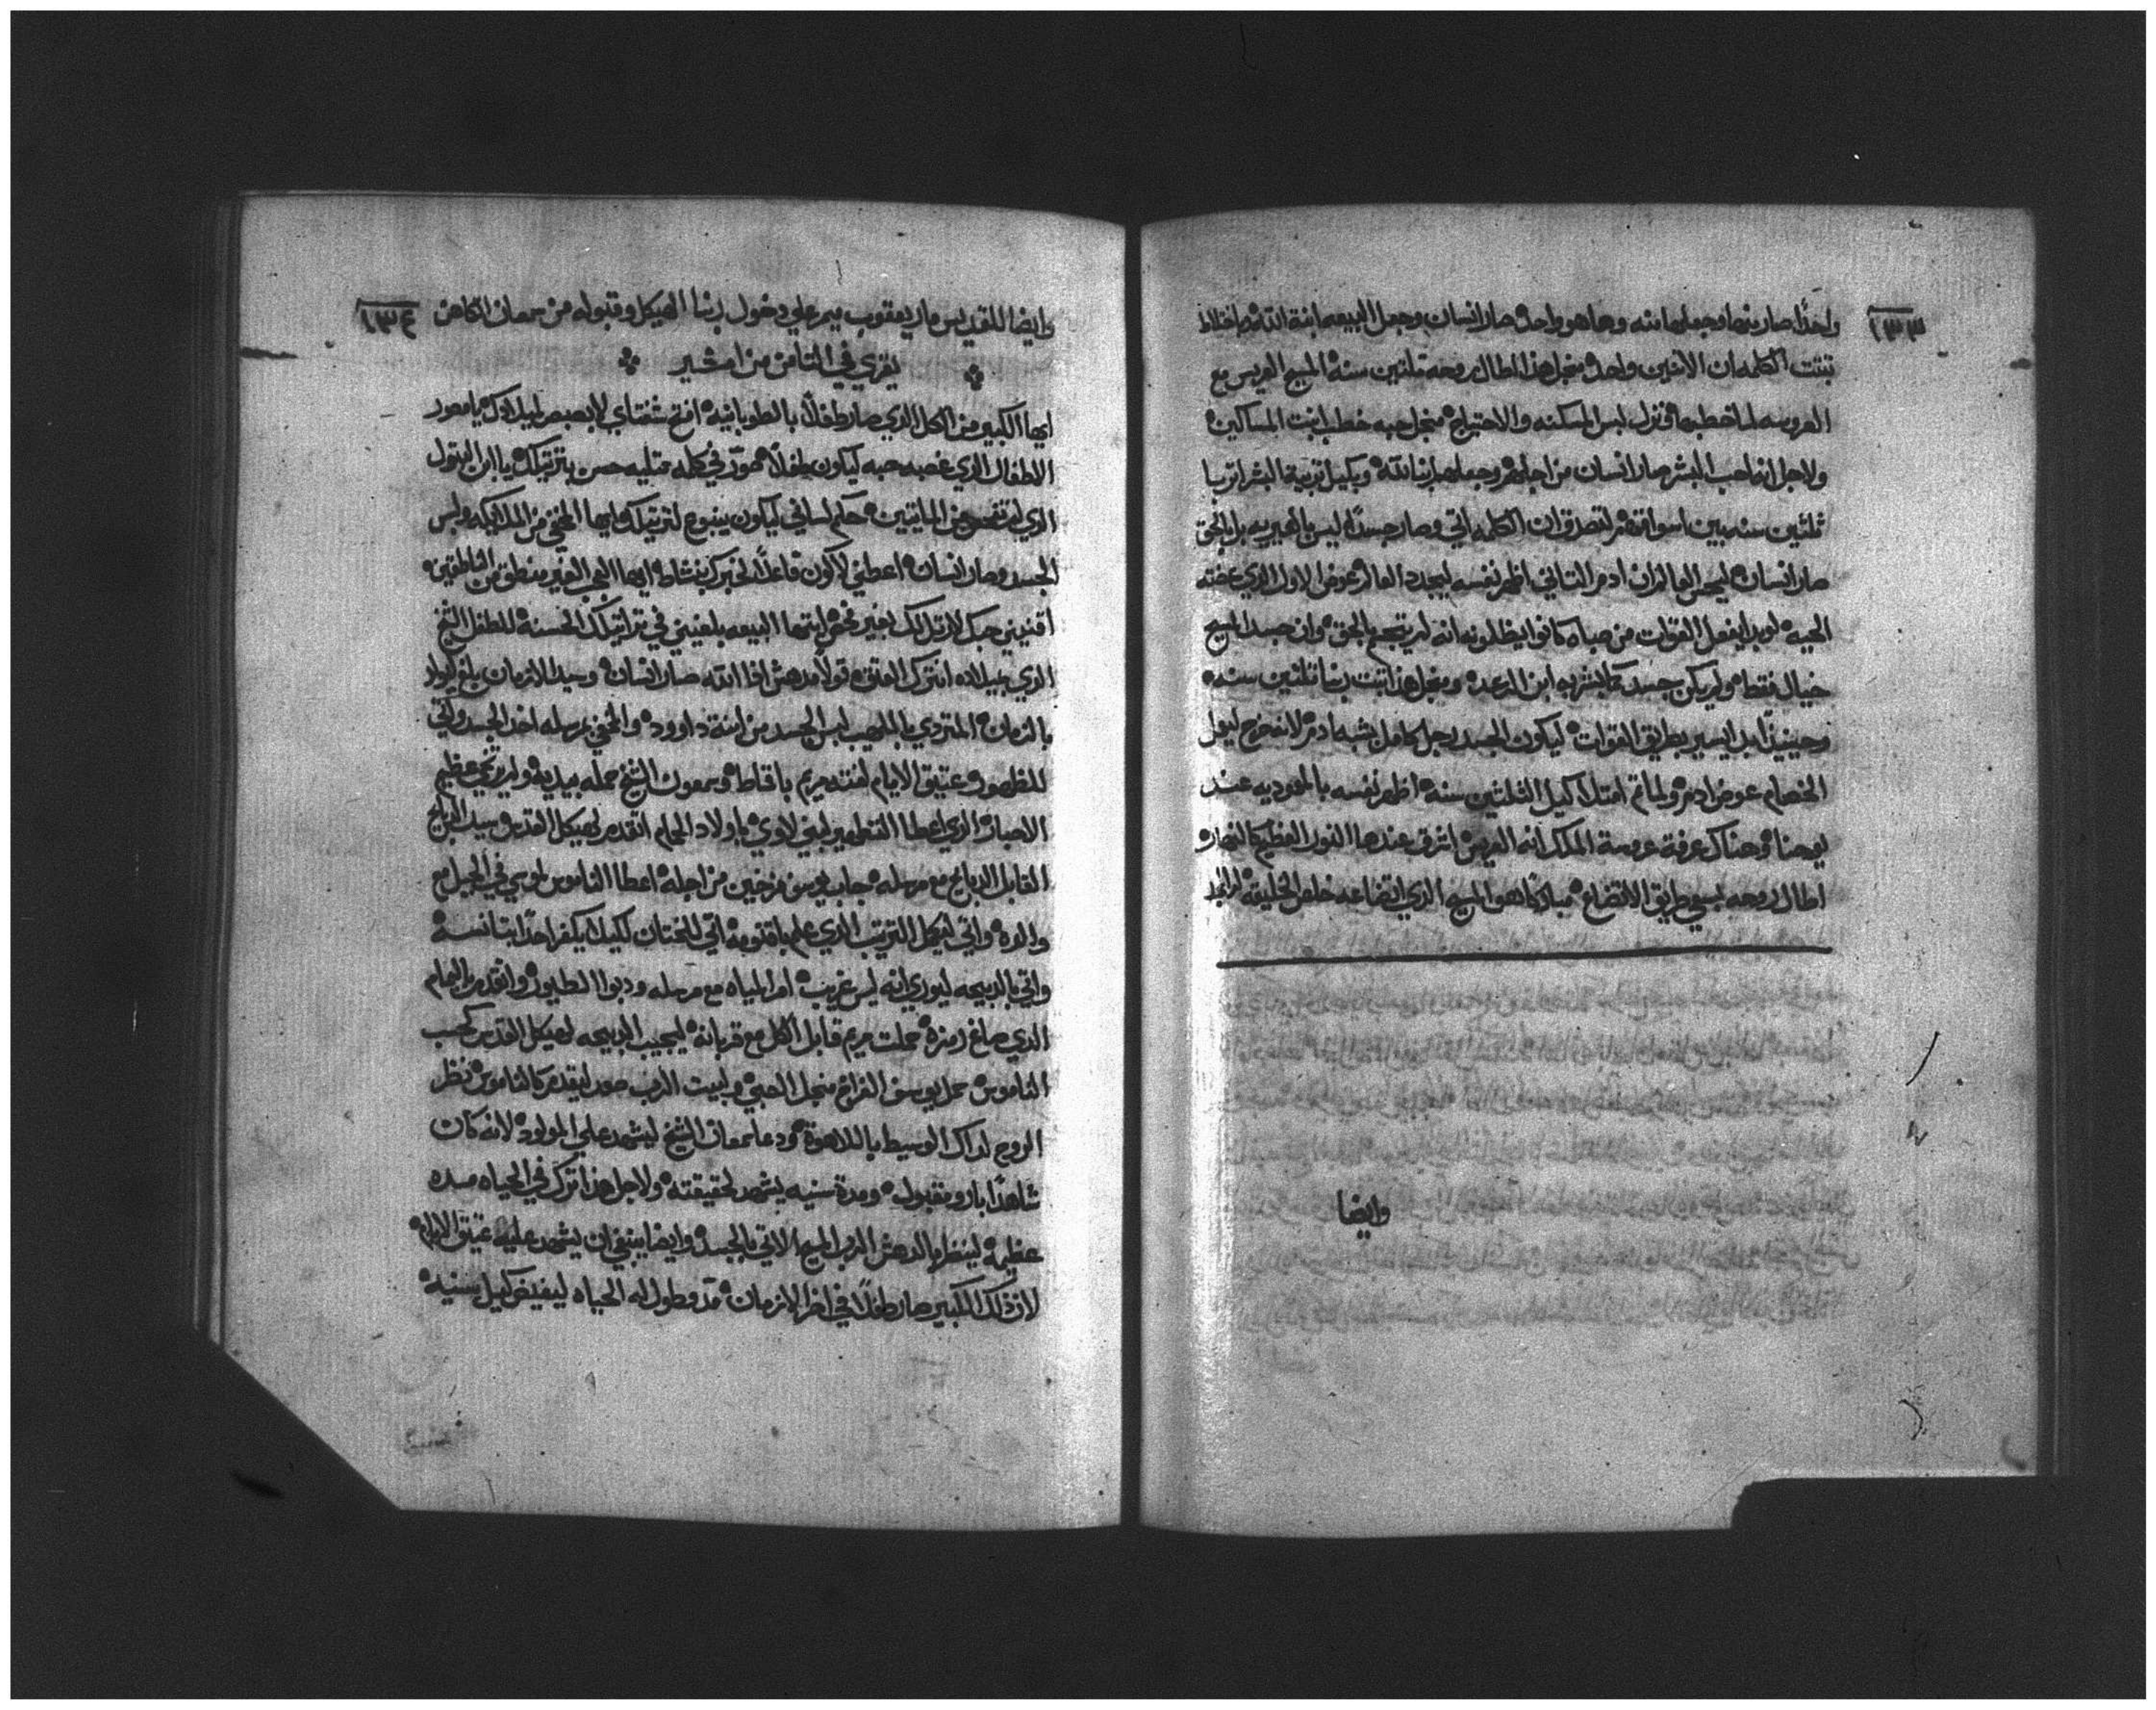 ١٣٣
واحداً صار منها وجعلها منه وهاهو واحد صار انسان وجعل البيعه ابنة الله
تبتت الكلمه ان الاثنين واحد منجل هذا اطال روحه ثلثين سنه المسيح العريس مع
العروسه لما خطبها فنزل لبس المسكنه والاحتياج منجل حبه خطب ابنت المساكين
ولاجل انه احب البشر صار انسان من اجلهم وجعلهم ابنا الله وبكيل تربية البشر اتربا
ثلثين سنه بين اسواقهم لتصدق ان الكلمه اتي وصار جسداً ليس بالغيريه بل بالحق
صار انسان ليحس العالم ان ادم الثاني اظهر نفسه ليجدد العالم عوض الاول الذي عضته
الحيه لو بدا يفعل القوات من صباه كانوا يظلونه انه لم يتجسم بالحق وان جسد المسيح
خيال فقط ولم يكن جسد كالبشريه ابن الرعد ومنجل هذا تبت ربنا ثلثين سنه
وحينيذاً بدا يسير بطريق القوات ليكون الجسد رجل كامل بشبه ادم لانه خرج ليعمل
الخصام عوض ادم ولما تم امتلا كيل الثلثين سنه اظهر نفسه بالمعوديه عند
يوحنا وهناك عرفة عروسة الملك انه العريس اشرق عندها النور العظيم كالنهار
اطال روحه بسعي طريق الاتضاع مباركاً هو المسيح الذي اتضاعه خلص الخليقه
وايضا
١٣٤
وايضا للقديس مار يعقوب ميمر علي دخول ربنا الهيكل وقبوله من سمعان الكاهن
يقري في الثامن من امشير
ايها الكبير من الكل الذي صار طفلاً بالطوبانيه افتح شفتاي لابصبص لميلادك يا مصور
الاطفال الذي غصبه حبه ليكون طفلاً صور في كلمه مملييه حسن بترتيلك يا ابن البتول
الذي لم تفحص من المايتين حكم لساني ليكون ينبوع لترتيلك ايها المخفي من الملايكه ولبس
الجسد وصار انسان اعطني لاكون فاعلاً لخبرك بنشاط ايها العجب الغير منطق من الناطقين
اقنيني حبك لارتل لك بغير فحص ايتها البيعه بلغيني في تراتيلك الحسنة للطفل الشيخ
الذي بميلاده اشرك العتق قولاً مدهش اذا الله صار انسان وسيد الازمان بلغ لميلاد
بالزمان المتردي باللهيب لبس الجسد من ابنة داوود والمخفي بمرسله اخد الجسد واتي
للظهور عتيق الايام لفته مريم باقماط وسمعون الشيخ حمله بيديه عظيم
الاحبار الذي اعطا التطهير لبني لاوي باولاد الحمام اتقدم لهيكل القدس وسيد الدبايح
القابل الدبايح مع مرسله جاب يوسف فرخين من اجله اعطا الناموس لموسي في الجبل مع
والده واتي ليكمل الترتيب الذي علم باقنومه اتي للختان لكيلا يكفر احداً بتانسه
واتي بالدبيحه ليوري انه ليس غريب امر المياه مع مرسله ودبوا الطيور واتقدم بالحمام
الذي صاغ رمزه حملت مريم قابل الكل مع قربانه ليجيب الدبيحه لهيكل القدس كحسب
الناموس حمل يوسف الفراخ منجل الصبي ولبيت الرب صعد ليقدم كالناموس نظر
الروح لداك الوسيط باللاهوة ودعا سمعان الشيخ ليشهد علي المولود لانه كان
شاهداً بار ومقبول ومدة سنيه يشهد لحقيقته ولاجل هذا ترك في الحياه مده
عظيمه لينظر الدهش الرب المسيح الاتي بالجسد وايضا ينبغي ان يشهد عليه عتيق الايام
لان ذلك الكبير صار طفلاً في اخر الازمان مد مطول له الحياه ليفيض كيل سنيه